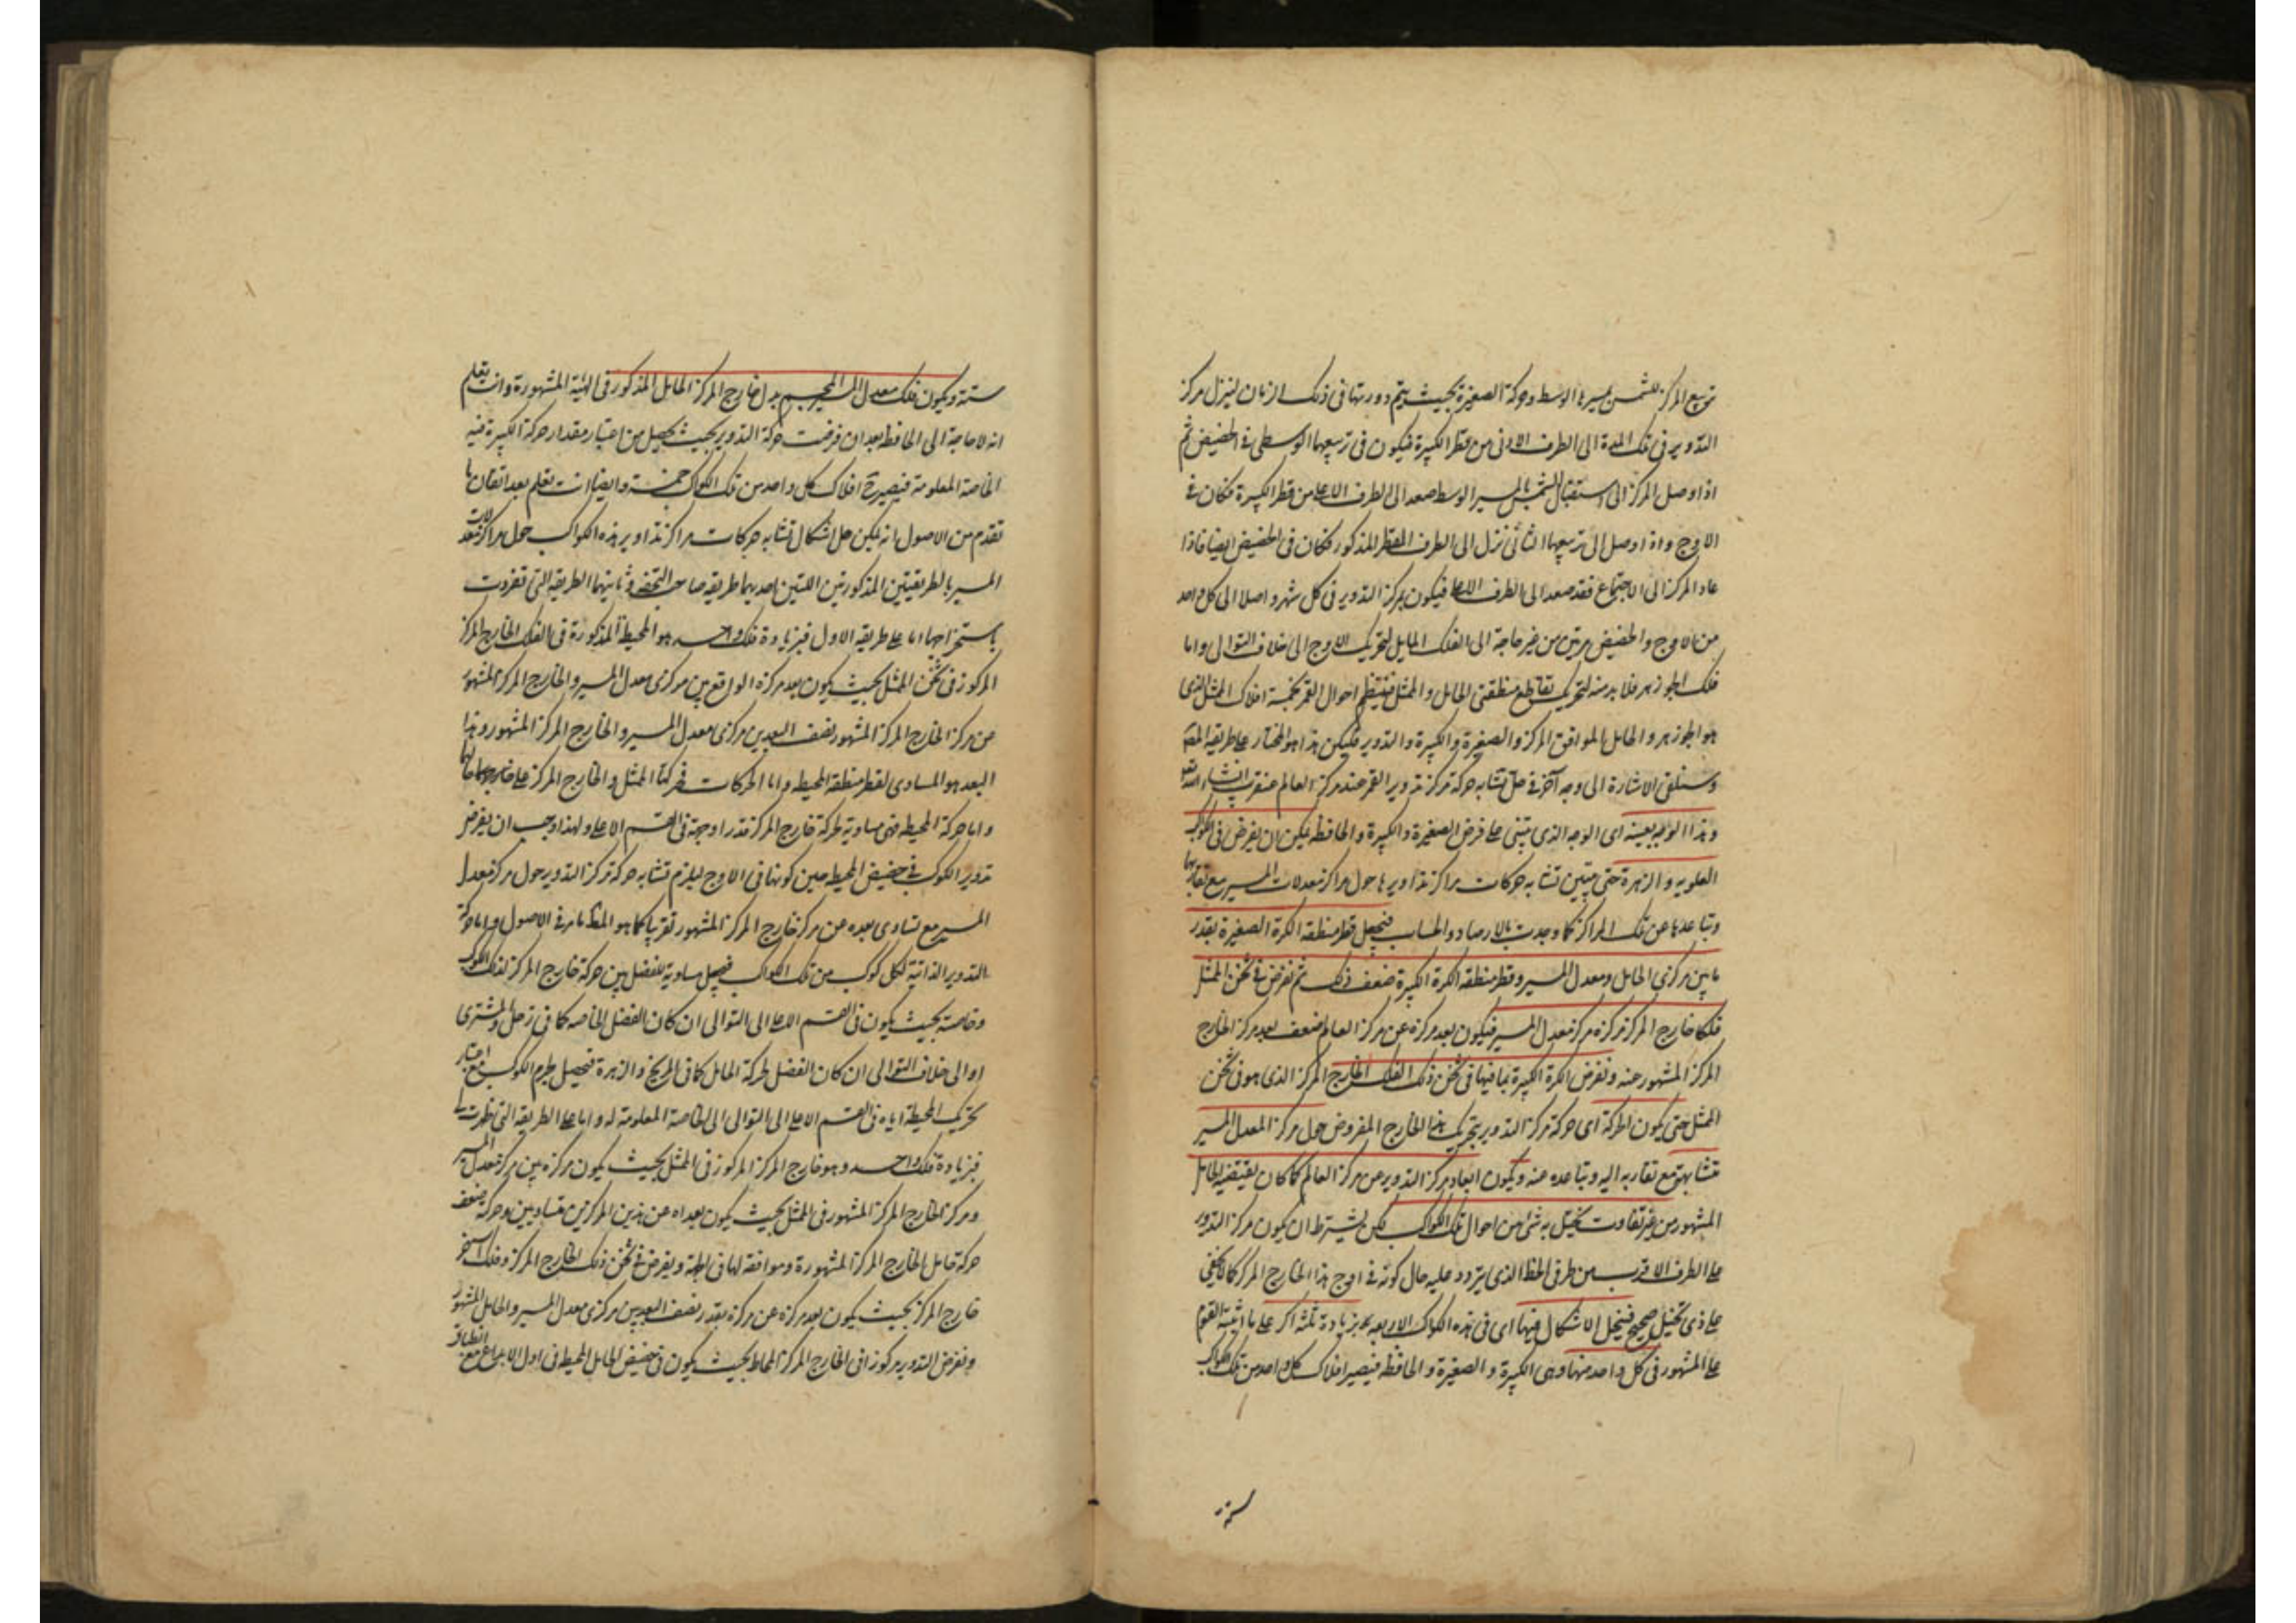 تربيع المركز للشمس بسيرها الوسط وحركة الصغيرة بحيث يتم دورتها فى ذلك الزمان لينزل مركز
التدوير فى تلك المدة الى الطرف الادنى من قطر الكبيرة فيكون فى تربيعها الوسطى فى الحضيض ثم
اذا وصل المركز الى استقبال الشمس بالسير الوسط صعد الى الطرف الاعلى من قطر الكبيرة فكان فى
الاوج واذا وصل الى تربيعها الثانى نزل الى الطرف القطر المذكور فكان فى الحضيض ايضا فاذا
عاد المركز الى الاجتماع فقد صعد الى الطرف الاعلى فيكون مركز التدوير فى كل شهر واصلا الى كل واحد
من الاوج والحضيض مرتين من غير حاجة الى الفلك المايل لتحريك الاوج الى خلاف التوالى واما
فلك الجوزهر فلا بد منه لتحريك تقاطع منطقتى المايل والممثل فينتظم احوال القمر بخمسة افلاك الممثل الذى
هو الجوزهر والحامل الموافق المركز والصغيرة والكبيرة والتدوير فليكن هذا هو المختار على طريقة المص
وستلقى الاشارة الى وجه آخر فى حل تشابه حركة مركز تدوير القمر عند مركز العالم عنقريب انشاء الله تع
وهذا الوجه بعينه اى الوجه الذى يبتنى على فرض الصغيرة والكبيرة والحافظة يمكن ان يفرض فى الكواكب
العلويه والزهرة حتى يتبين تشابه حركات مراكز تداويرها حول مراكز معدلات المسير مع تقاربها
وتباعدها عن تلك المراكز كما وجدت بالارصاد والحساب فنجعل قطر منطقة الكرة الصغيرة بقدر
ما بين مركزى الحامل ومعدل المسير وقطر منطقة الكرة الكبيرة ضعف ذلك ثم نفرض فى ثخن الممثل
فلكا خارج المركز مركزه مركز معدل المسير فيكون بعد مركزه عن مركز العالم ضعف بعد مركز الخارج
المركز المشهور عنه ونفرض الكرة الكبيرة بما فيها فى ثخن ذلك الفلك الخارج المركز الذى هو فى ثخن
الممثل حتى يكون الحركة اى حركة مركز التدوير بتحريك هذا الخارج المفروض حول مركز المعدل المسير
متشابهة مع تقاربه اليه وتباعده عنه ويكون ابعاد مركز التدوير من مركز العالم كما كان يقتضيه الحامل
المشهور من غير تفاوت يختل به شئ من احوال تلك الكواكب لكن يشترط ان يكون مركز التدوير
على الطرف الاقرب من طرفى الخط الذى يتردد عليه حال كونه فى اوج هذا الخارج المركز كما لا يخفى
على ذى تخيل صحيح فينحل الاشكال فيها اى فى هذه الكواكب الاربعة بزيادة ثلثة اكر على ما اثبته القوم
على المشهور فى كل واحد منها وهى الكبيرة والصغيرة والحافظة فيصير افلاك كل واحد من تلك الكواكب
ستة
ستة ويكون فلك معدل المسير المجسم بدل خارج المركز الحامل المذكور فى الهيئة المشهورة وانت تعلم
انه لا حاجة الى الحافظة بعد ان فرضت حركة التدوير بحيث يحصل من اعتبار مقدار حركة الكبيرة فيه
الخاصة المعلومة فيصير ح افلاك كل واحد من تلك الكواكب خمسة وايضا انت تعلم بعد اتقان ما
تقدم من الاصول انه يمكن حل اشكال تشابه حركات مراكز تداوير هذه الكواكب حول مراكز معدلات
المسير بالطريقتين المذكورتين اللتين احديهما طريقة صاحب التحفة وثانيتهما الطريقة التى تفردت
باستخراجها اما على طريقة الاول فبزيادة فلك واحد هو المحيطة المذكورة فى الفلك الخارج المركز
المركوز فى ثخن الممثل بحيث يكون بعد مركزه الواقع بين مركزى معدل المسير والخارج المركز المشهور
من مركز الخارج المركز المشهور نصف البعد بين مركزى معدل المسير والخارج المركز المشهور وهذا
البعد هو المساوى لقطر منطقة المحيطة واما الحركات فحركتا الممثل والخارج المركز على حالهما
واما حركة المحيطة فهى مساوية لحركة خارج المركز قدرا وجهة فى القسم الاعلى ولهذا وجب ان يفرض
تدوير الكوكب فى حضيض المحيطة حين كونها فى الاوج ليلزم تشابه حركة مركز التدوير حول مركز معدل
المسير مع تساوى بعده عن مركز خارج المركز المشهور تقريبا كما هو المظ مما مر فى الاصول واما حركة
التدوير الذاتية لكل كوكب من تلك الكواكب فنجعل مساوية للفضل بين حركة خارج المركز لذلك الكوكب
وخاصته بحيث يكون فى القسم الاعلى الى التوالى ان كان الفضل للخاصه كما فى زحل والمشترى
او الى خلاف التوالى ان كان الفضل لحركة الحامل كما فى المريخ والزهرة فيحصل لجرم الكوكب مع اعتبار
تحريك المحيطة اياه فى القسم الاعلى الى التوالى الخاصة المعلومة له واما على الطريقة التى ظهرت
فبزيادة فلك واحد وهو خارج المركز المركوز فى الممثل بحيث يكون مركزه بين مركز معدل المسير
ومركز الخارج المركز المشهور فى الممثل بحيث يكون بعداه عن هذين المركزين متساويين وحركته ضعف
حركة حامل الخارج المركز المشهورة وموافقة لها فى الجهة ويفرض فى ثخن ذلك الخارج المركز فلك آخر
خارج المركز بحيث يكون بعد مركزه عن مركزه بقدر نصف البعد بين مركزى معدل المسير والحامل المشهور
ونفرض التدوير مركوزا فى الخارج المركز المحاط بحيث يكون فى حضيض الحامل المحيط فى اول الابداع مع انطباق